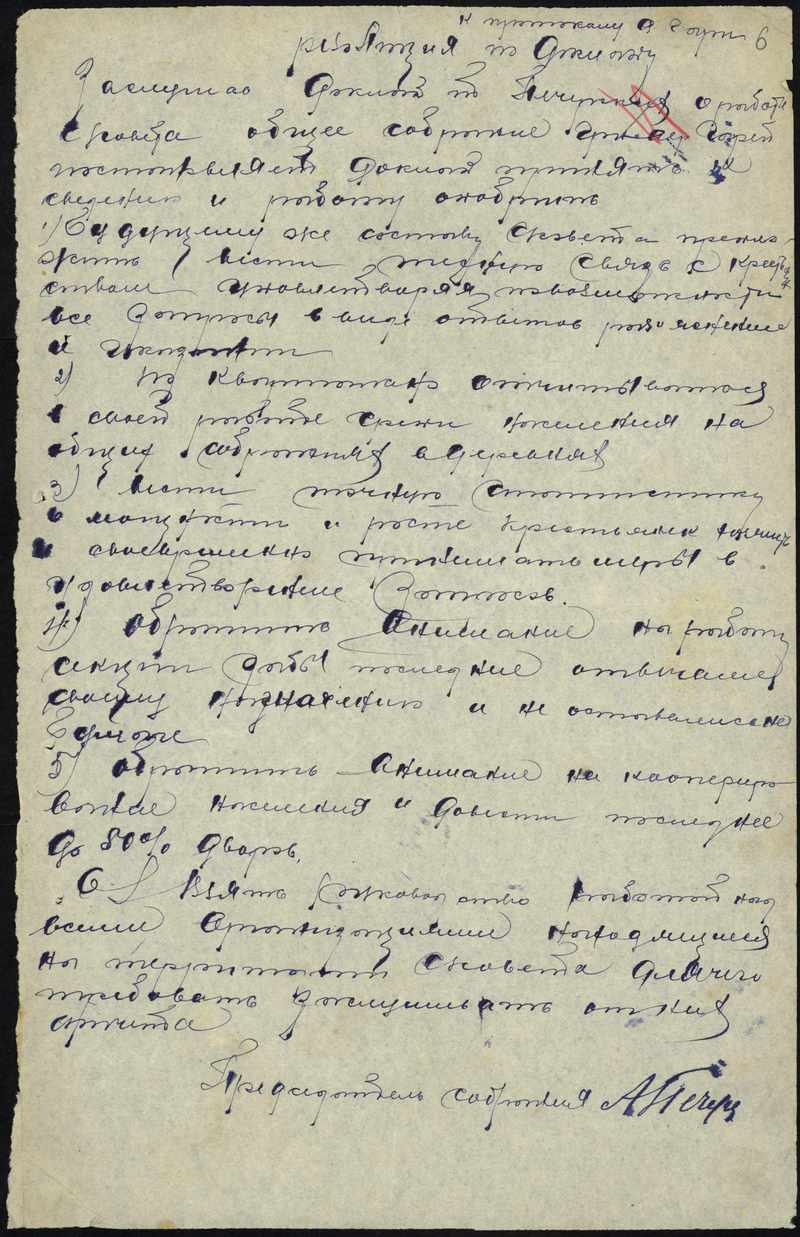 к протоколу 6
резолюция по докладу
Заслушав доклад т. о работе
С/совета общее собрание
постановляет доклад принять к
сведению и работу одобрить
1) Будущему же составу с/совета предло-
жить вести тесную связь с крестьян
ством удовлетворяя по возможности
все запросы в виде ответов разъяснение
и указании
2) по квартально отчитываться
о своей работе среди населения на
общих собраниях в деревнях
3) вести точную статистику
о мощности и росте крестьянск
и своевременно принимать меры в
удовлетворение запросов.
4) обратить внимание на работу
секции дабы последние отвечали
своему назначению и не оставались на
бумаге
5) обратить внимание на коопериро
вание населения и довести последнее
до 80% дворов.
6) Взять руководство работой над
всеми организациями находящиеся
на территории с/совета для чего
требовать заслушивать от них
отчета
Председатель собрания